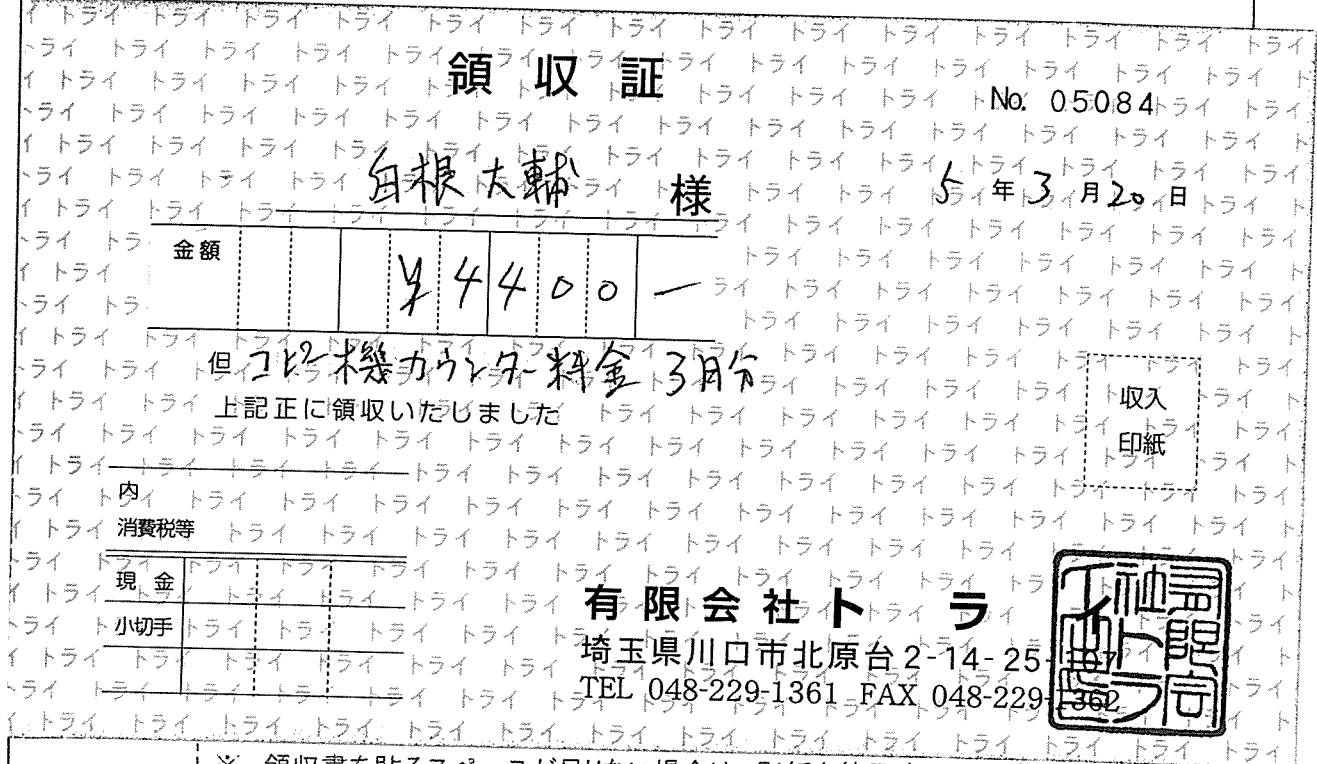 領収証
No. 05084
白根大輔 様
5年3月20日
金額 ¥4400-
但 コピー機カウンター料金 3月分
上記正に領収いたしました
収入
印紙
内
消費税等
現金
小切手
有限会社トライ
埼玉県川口市北原台2-14-25-107
TEL 048-229-1361 FAX 048-229-1362